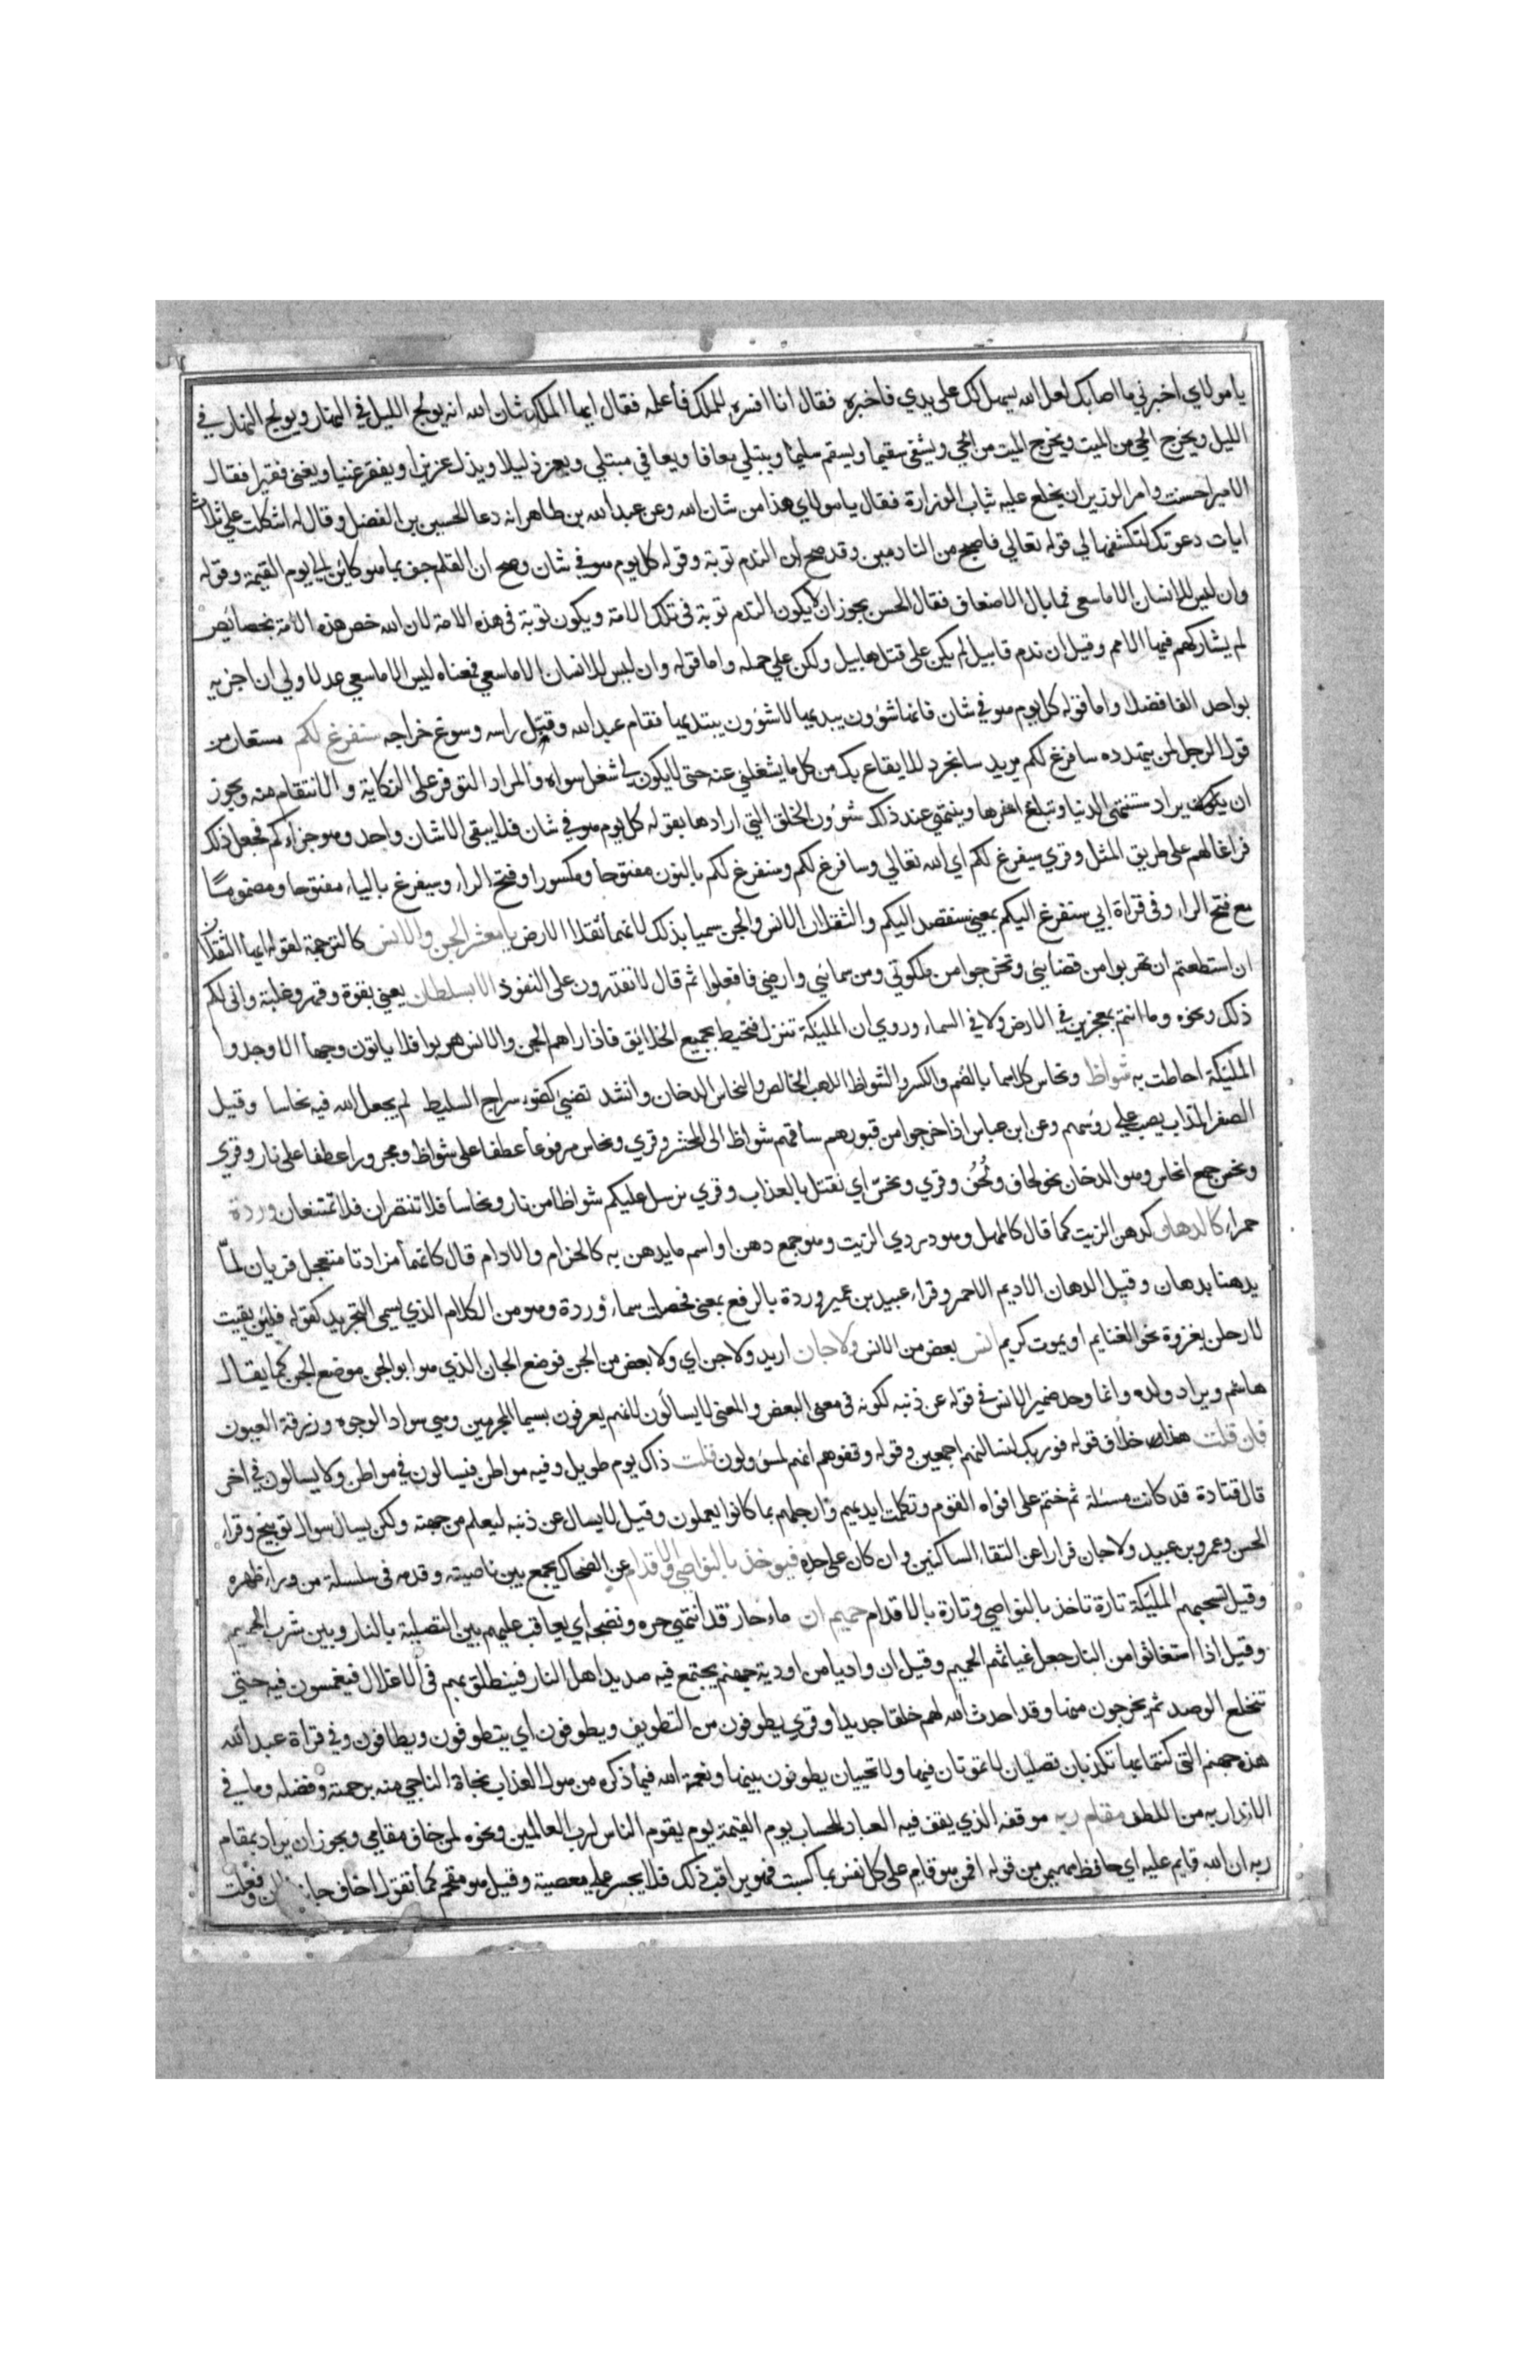 يا مولاي اخبرني ما اصابك لعل الله يسهل لك على يدي فاخبره فقال انا افسره للملك فأعلمه فقال ايها الملك شان الله انه يولج الليل في النهار ويولج النهار في
الليل ويخرج الحي من الميت ويخرج الميت من الحي ويشفي سقيما ويسقم سليما ويبتلي معافا ويعافي مبتلي ويعز ذليلا ويذل عزيزا ويفقر غنيا ويغني فقيرا فقال
الامير احسنت وامر الوزير ان يخلع عليه ثياب الوزارة فقال يا مولاي هذا من شان الله وعن عبد الله بن طاهر انه دعا الحسين بن الفضل وقال له اشكلت علي ثلاث
ايات دعوتك لتكشفها لي قوله تعالي فاصبح من النادمين وقد صح ان الندم توبة وقوله كل يوم هو في شان وصح ان القلم جف بما هو كاين الي يوم القيمة وقوله
وان ليس للانسان الا ما سعي فما بال الاضعاف فقال الحسن يجوز ان لا يكون الندم توبة في تلك الامة ويكون توبة في هذه الامة لان الله خص هذه الامة بخصائص
لم يشاركهم فيها الامم وقيل ان ندم قابيل لم يكن على قتل هابيل ولكن علي حمله واما قوله وان ليس للانسان الا ما سعي فمعناه ليس الا ما سعي عدلا ولي ان اجزيه
بواحد الفا فضلا واما قوله كل يوم هو في شان فانها شؤون يبديها لا شؤون يبتديها فقام عبد الله وقبّل راسه وسوغ خراجه سنفرغ لكم مستعار من
قول الرجل لمن يتهدده سافرغ لكم يريد ساتجرد للايقاع بك من كل ما يشغلني عنه حتى لا يكون لي شغل سواه والمراد التوفر على النكاية والانتقام منه ويجوز
ان يكون يراد ستنتهي الدنيا وتبلغ اخرها وينتهي عند ذلك شؤون الخلق التي ارادها بقوله كل يوم هو في شان فلا يبقى الا شان واحد وهو جزاءكم فجعل ذلك
فراغا لهم على طريق المثل وقري سيفرغ لكم اي الله تعالي وسافرغ لكم وسنفرغ لكم بالنون مفتوحا ومكسورا وفتح الراء وسيفرغ بالياء مفتوحا ومضموما
مع فتح الراء وفي قراة ابي سنفرغ اليكم بمعني سنقصد اليكم والثقلان الانس والجن سميا بذلك لانهما ثقلا الارض يا معشر الجن والانس كالترجمة لقوله ايها الثقلان
ان استطعتم ان تهربوا من قضائي وتخرجوا من ملكوتي ومن سمائي وارضي فافعلوا ثم قال لا تقدرون على النفوذ الا بسلطان يعني بقوة وقهر وغلبة واني لكم
ذلك ونحوه وما انتم بمعجزين في الارض ولا في السماء وروي ان المليكة تنزل فتحيط بجميع الخلائق فاذا راهم الجن والانس هربوا فلا ياتون وجها الا وجدوا
المليكة احاطت به شواظ ونحاس كلاهما بالضم والكسر والشواظ اللهب الخالص والنحاس الدخان وانشد تضيئ كضوء سراج السليط لم يجعل الله فيه نحاسا وقيل
الصفر المذاب يصب علي رؤسهم وعن ابن عباس اذا خرجوا من قبورهم ساقهم شواظ الى المحشر وقري ونحاس مرفوعا عطفا على شواظ ومجرورا عطفا على نار وقري
ونحس جمع نحاس وهو الدخان نحو لحاف ولُحُف وقري ونحسّ اي نقتل بالعذاب وقري نرسل عليكم شواظا من نار ونحاسا فلا تنتصران فلا تمتنعان وردة
حمراء كالدهان كدهن الزيت كما قال كالمهل وهو دردي الزيت وهو جمع دهن او اسم ما يدهن به كالحزام والادام قال كانهما مزادتا متعجل فريان لمّا
يدهنا بدهان وقيل الدهان الاديم الاحمر وقراء عبيد بن عمير وردة بالرفع بمعني فحصلت سماء وردة وهو من الكلام الذي يسمى التجريد كقوله فلين بقيت
لارحلن بغزوة نحو الغنايم او يموت كريم انس بعض من الانس ولا جان اريد ولا جن اي ولا بعض من الجن فوضع الجان الذي هو ابو الجن موضع الجن كما يقال
هاشم ويراد ولده وانما وحد ضمير الانس في قوله عن ذنبه لكونه في معنى البعض والمعنى لا يسالون لانهم يعرفون بسيما المجرمين وهي سواد الوجوه وزرقة العيون
فان قلت هذا خلاف قوله فوربك لنسالنهم اجمعين وقوله وقفوهم انهم لمسؤولون قلت ذاك يوم طويل وفيه مواطن فيسالون في مواطن ولا يسالون في اخر
قال قتادة قد كانت مسئلة ثم ختم على افواه القوم وتكلمت ايديهم وارجلهم بما كانوا يعملون وقيل لا يسال عن ذنبه ليعلم من جهته ولكن يسال سوال توبيخ وقراء
الحسن وعمرو بن عبيد ولا جان فرارا عن التقاء الساكنين وان كان على حده فيوخذ بالنواصي والاقدام عن الضحاك يجمع بين ناصيته وقدمه في سلسلة من وراء ظهره
وقيل تسحبهم المليكة تارة تاخذ بالنواصي وتارة بالاقدام حميم ان ماء حار قد انتهي حره ونضجه اي يعاقب عليهم بين التصلية بالنار وبين شرب الحميم
وقيل اذا استغاثوا من النار جعل غياثهم الحميم وقيل ان واديا من اودية جهنم يجتمع فيه صديد اهل النار فينطلق بهم في الاغلال فيغمسون فيه حتي
تنخلع الوصد ثم يخرجون منها وقد احدث الله لهم خلقا جديدا وقري يطوفون من التطويف ويطوفون اي يتطوفون ويطافون وفي قراة عبد الله
هذه جهنم التي كنتما بها تكذبان تصليان لا تموتان فيها ولا تحييان يطوفون بينها ونعمة الله فيما ذكره من هول العذاب نجاة الناجي منه برحمته وفضله وما في
الانذار به من اللطف مقام ربه موقفه الذي يقف فيه العباد للحساب يوم القيمة يوم يقوم الناس لرب العالمين ونحوه لمن خاف مقامي ويجوز ان يراد بمقام
ربه ان الله قايم عليه اي حافظ مهيمن من قوله افمن هو قايم على كل نفس بما كسبت فهو يراقب ذلك فلا يجسر علي معصية وقيل هو مقحم كما تقول اخاف جانب فلان وفعلت